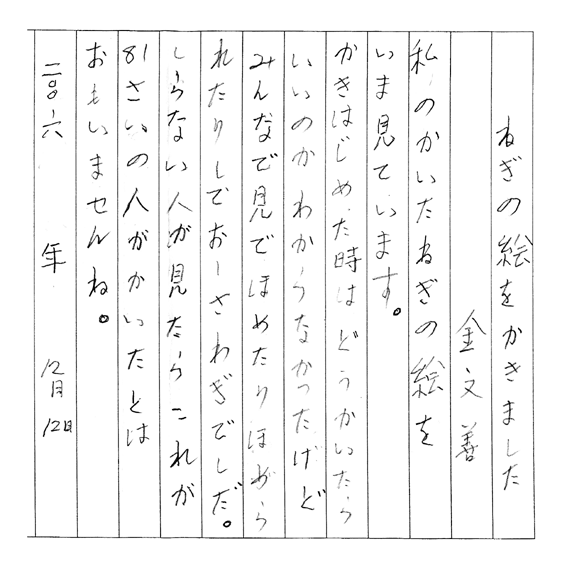 ねぎの絵をかきました
金文善
私のかいたねぎの絵を
いま見ています。
かきはじめた時はどうかいたら
いいのかわからなかったけど
みんなで見でほめたりほめら
れたりしでおーさわぎでしだ。
しらない人が見たらこれが
81さいの人がかいたとは
おもいませんね。
二〇〇六年 12月12日